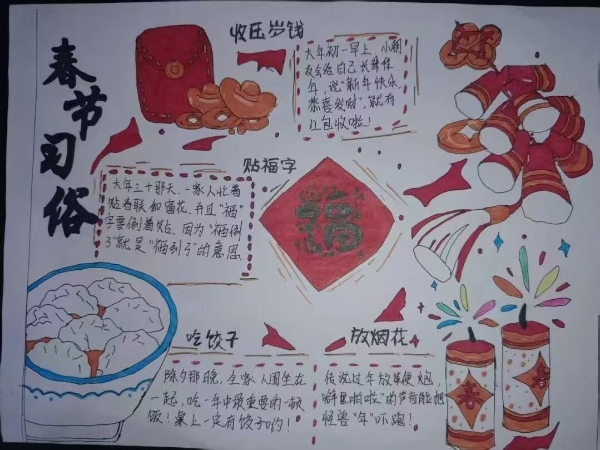 春节习俗
收压岁钱
大年初一早上,小朋
友会给自己长辈拜
年,说"新年快乐,
恭喜发财",就有
红包收啦!
贴福字
大年三十那天,一家人忙着
贴春联和窗花,并且"福"
字要倒着贴,因为"福倒
了"就是"福到了"的意思
福
吃饺子
除夕那晚,全家人围坐在
一起,吃一年中最重要的一顿
饭!桌上一定有饺子的!
放烟花
传说过年放鞭炮,
噼里啪啦"的声音能把
怪兽"年"吓跑!
春
春